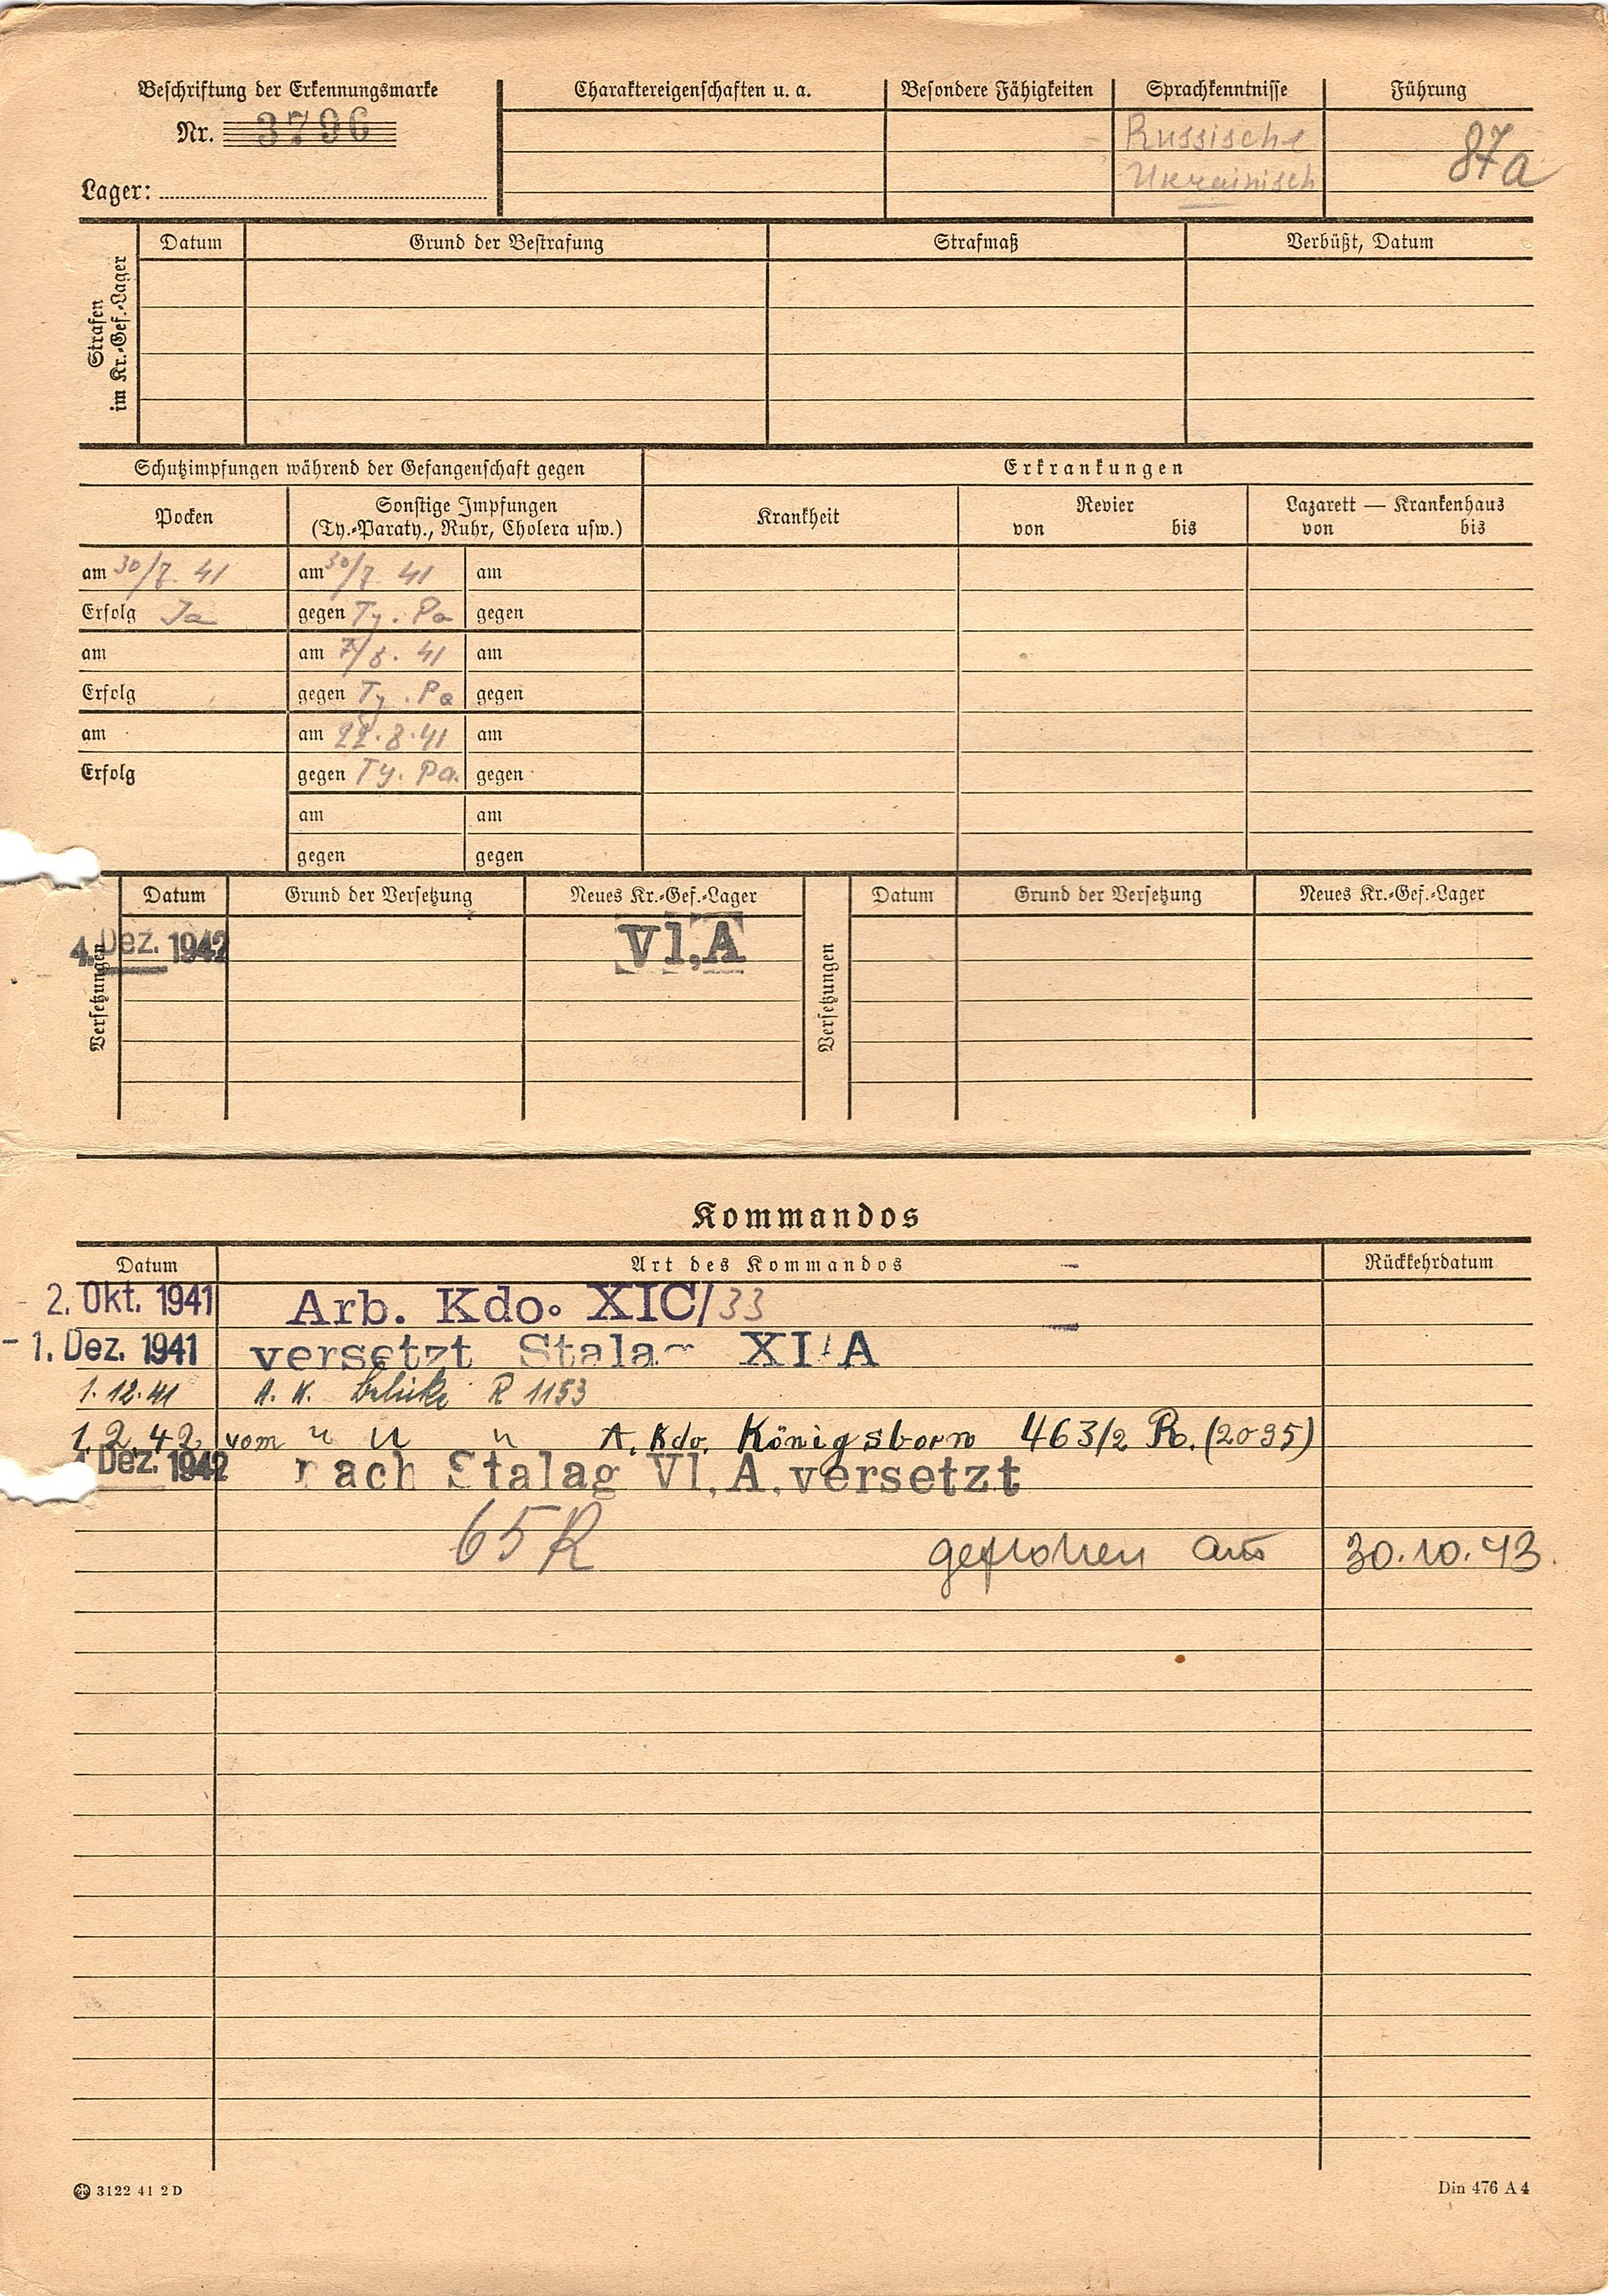 Beschriftung der Erkennungsmarke
Nr. 3796
Lager:
Charaktereigenschaften u. a.
Besondere Fähigkeiten
Sprachkenntnisse
Russische
Ukrainisch
Führung
87a
Strafen
im Kr.-Gef.-Lager
Datum
Grund der Bestrafung
Strafmaß
Verbüßt, Datum
Schutzimpfungen während der Gefangenschaft gegen
Erkrankungen
Pocken
Sonstige Impfungen
(Ty.-Paraty., Ruhr, Cholera usw.)
Krankheit
Revier
von bis
Lazarett — Krankenhaus
von bis
am 30/7. 41 am 30/7. 41 am
Erfolg Ja gegen Ty. Pa gegen
am am 7/8. 41 am
Erfolg gegen Ty. Pa gegen
am am 22.8.41 am
Erfolg gegen Ty. Pa. gegen
am am
gegen gegen
Versetzungen
Datum Grund der Versetzung Neues Kr.-Gef.-Lager
4. Dez. 1942 VI,A
Versetzungen
Datum Grund der Versetzung Neues Kr.-Gef.-Lager
Kommandos
Datum Art des Kommandos Rückkehrdatum
2. Okt. 1941 Arb. Kdo. XIC/33
1. Dez. 1941 versetzt Stalag XI A
1.12.41 A. K. R 1153
1.2.42 vom " " " A. Kdo. Königsborn 463/2 R. (2095)
4. Dez. 1942 nach Stalag VI,A, versetzt
65 R geflohen am 30.10.43.
3122 41 2 D
Din 476 A 4